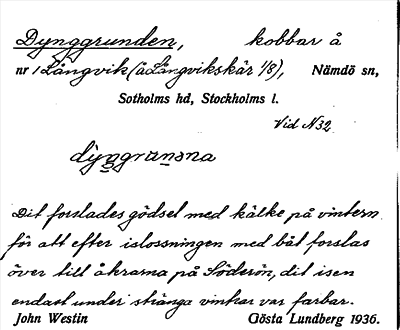 Dynggrunden, kobbar å
nr 1 Långvik (å Långvikskär 1/8), Nämdö sn,
Sotholms hd, Stockholms l.
Vid N32
dyŋgrunəna
Dit forslades gödsel med kälke på vintern
för att efter islossningen med båt forslas
över till åkrarna på Söderön, dit isen
endast under stränga vintrar var farbar.
John Westin Gösta Lundberg 1936.